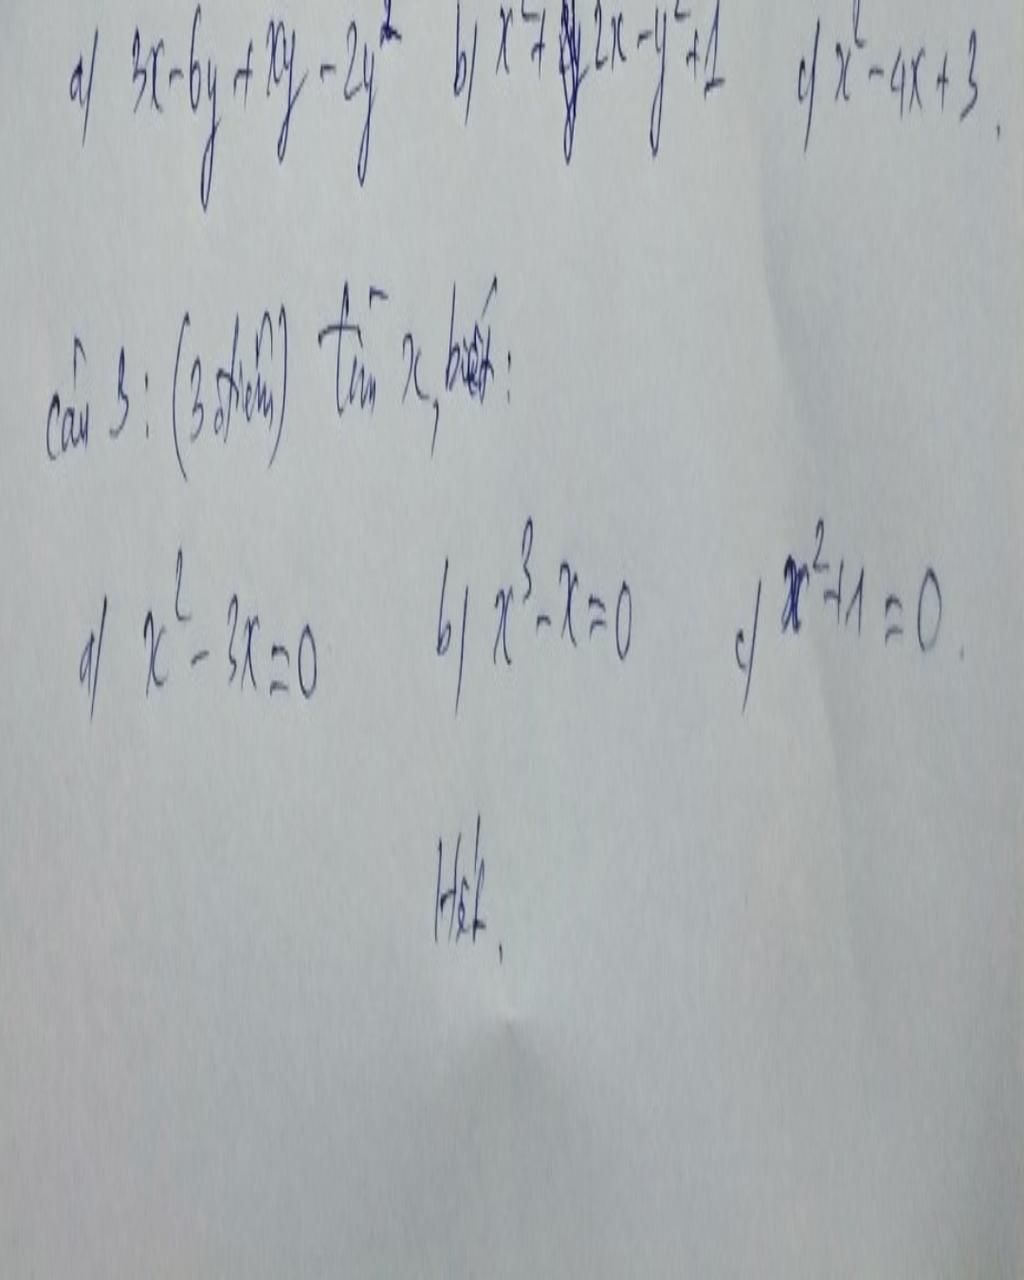 a) 3x-6y+xy-2y² b) x²+2x-y²+1 c) x²-4x+3.
câu 3: (3 điểm) tìm x, biết:
a) x²-3x=0 b) x³-x=0 c) x²+1=0.
Hết.